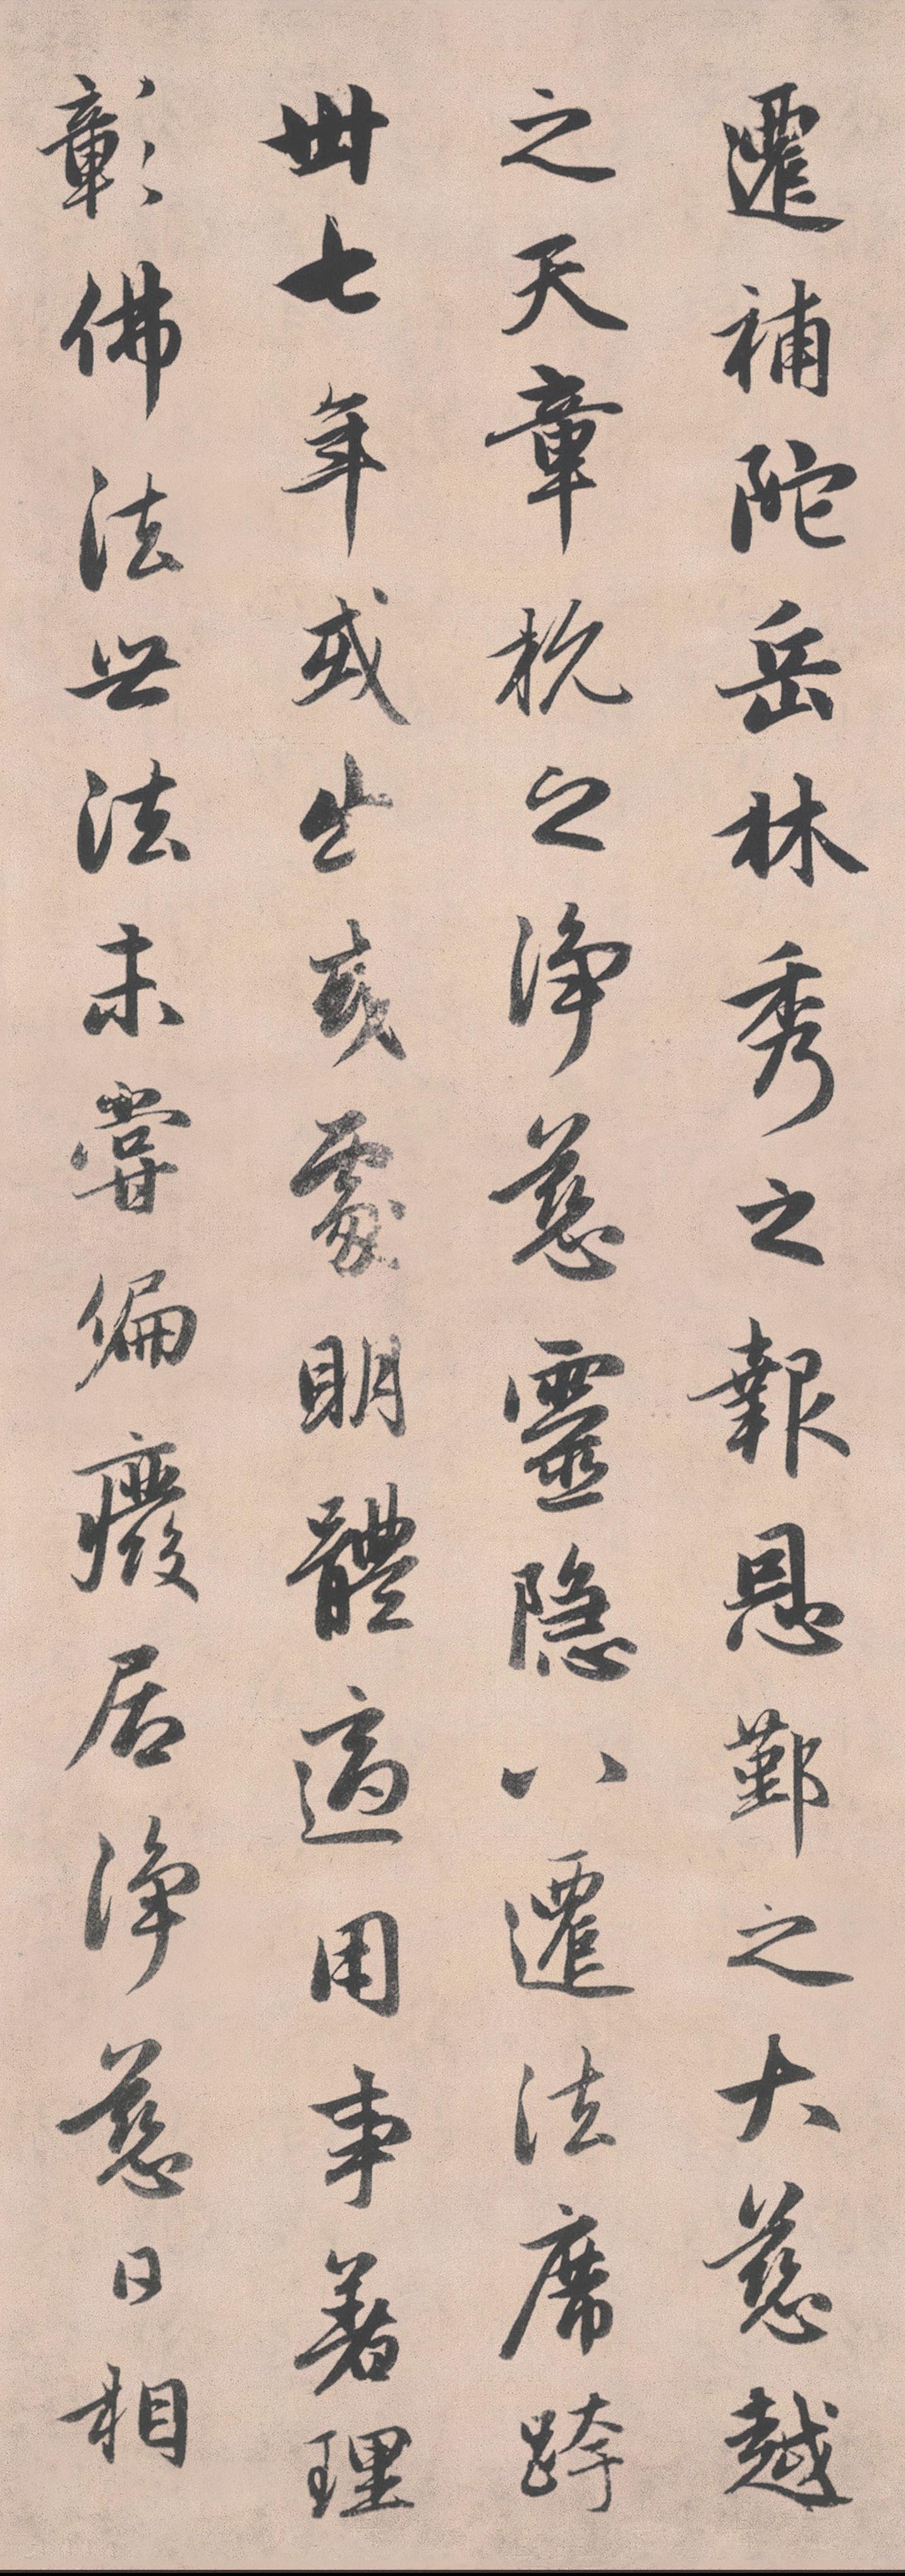 遷補陀岳林秀之報恩鄞之大慈越
之天章杭之淨慈靈隱八遷法席跨
卅七年或出或處明體適用事著理
彰佛法世法未嘗偏廢居淨慈日相